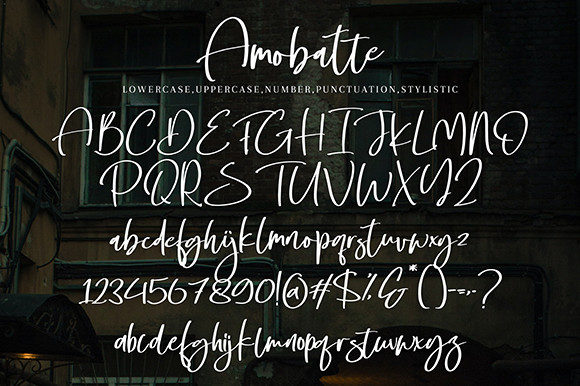 Amobatte
LOWERCASE,UPPERCASE,NUMBER,PUNCTUATION,STYLISTIC
ABCDEFGHIJKLMNO
PQRSTUVWXYZ
abcdefghijklmnopqrstuvwxyz
1234567890!@#$%&*()-=,.?
abcdefghijklmnopqrstuvwxyz